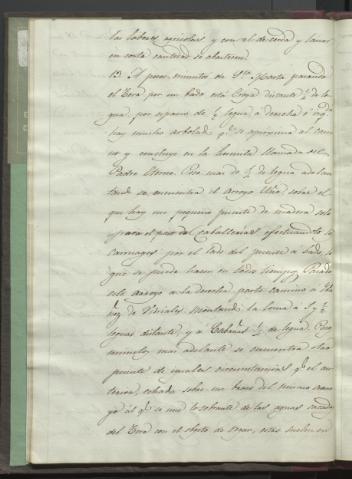 las labores agricolas, y con el de cerda y lanar
en corta cantidad se abastecen.
13. A pocos minutos de Sta. Marta pasando
el Tera por un bado esta Croya distante ½ de le
gua, por espacio de ½ legua á derecha é izqda.
hay mucho arbolado qe. se aproxima al cami
no y concluye en la hermita llamada del
Padre Eterno. Poco mas de ½ de legua adelan
tando se encuentra el arroyo sobre el
que hay un pequeño puente de madera solo
para el paso de caballerias efectuando lo
carruages por el lado del puente á bado, lo
que se puede hacer en todo tiempo. Pasado
este arroyo á la derecha parte camino á
de Vidriales remontando la loma á 1 y ½
leguas distante, y á ½ de legua. Pocos
minutos mas adelante se encuentra otro
puente de iguales circunstancias qe. el an
terior, echado sobre un brazo del mismo arro
yo al qe. se une lo sobrante de las aguas sacadas
del Tera con el objeto de regar, estas suelen en